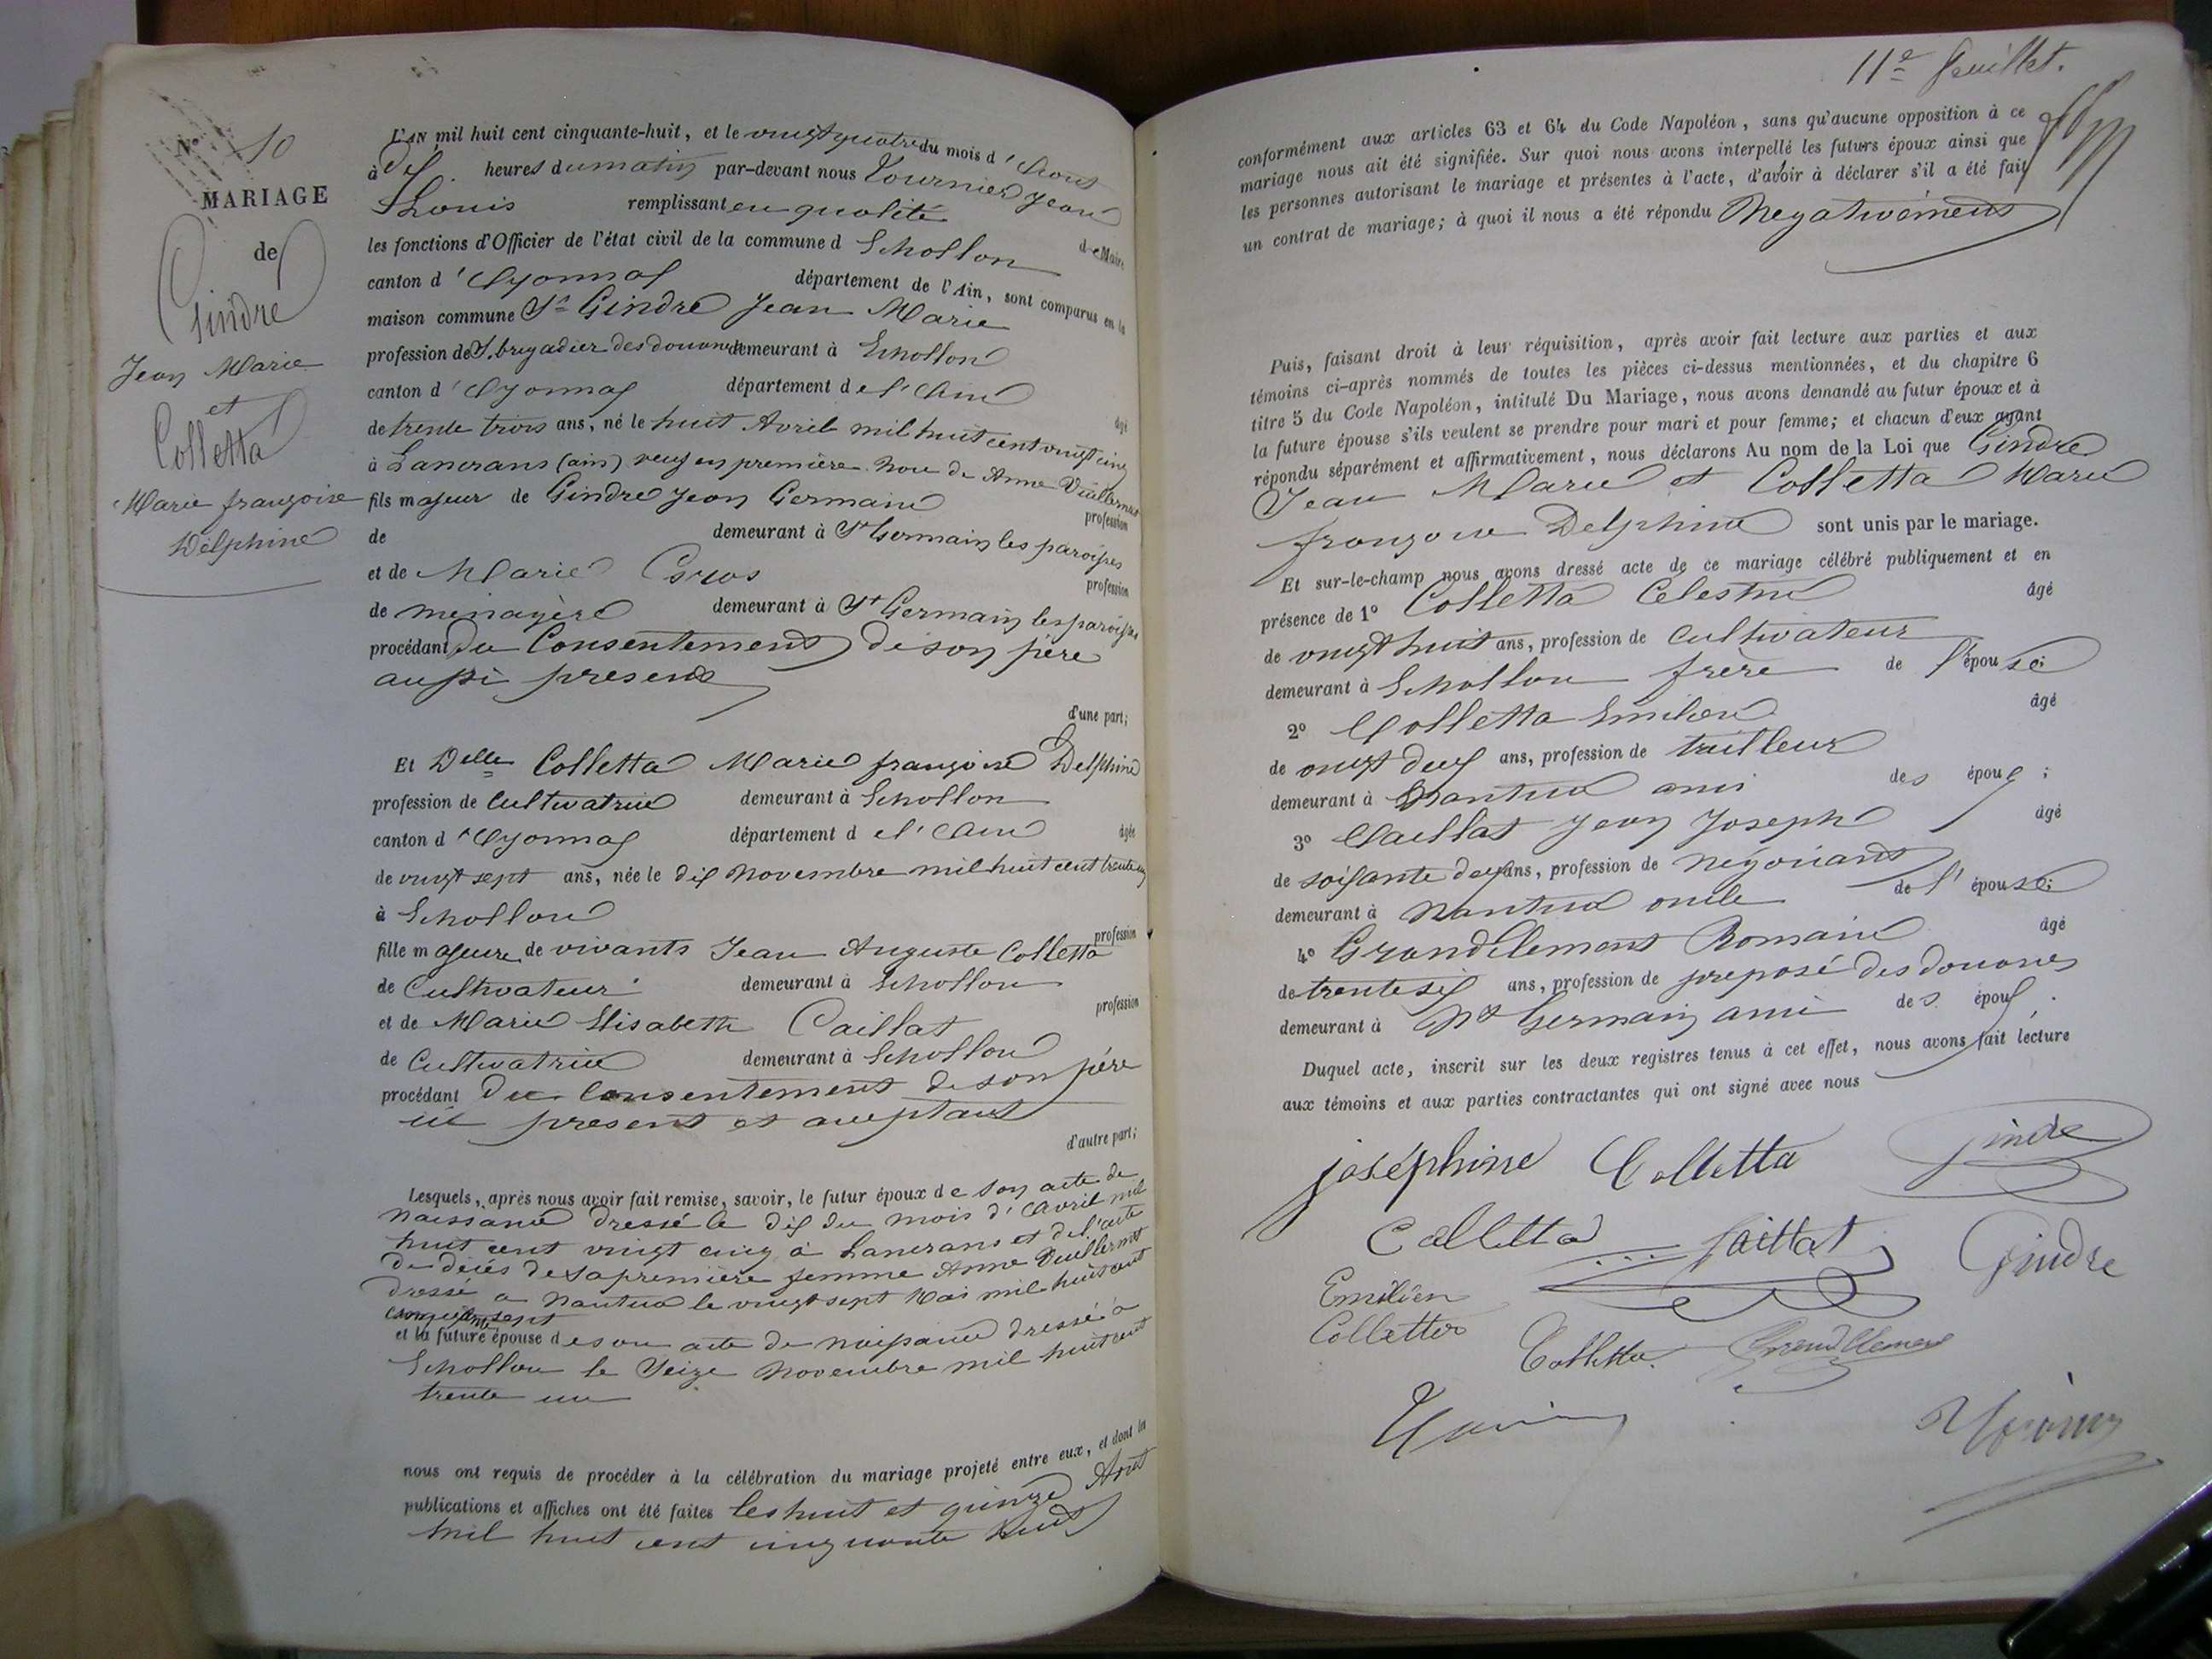 N° 10
MARIAGE
de
Gindre
Jean Marie
et
Colletta
Marie françoise
Delphine
L'AN mil huit cent cinquante-huit, et le vingt quatre du mois d'Aout
à dix heures du matin par-devant nous Tournier Jean
Louis remplissant en qualité de Maire
les fonctions d'Officier de l'état civil de la commune d Echollon
canton d'Oyonnax département de l'Ain, sont comparus en la
maison commune Sr Gindre Jean Marie
profession de S. brigadier des douanes demeurant à Echollon
canton d'Oyonnax département de l'Ain âgé
de trente trois ans, né le huit Avril mil huit cent vingt cinq
à Lancrans (ain) veuf en première Noce de Anne Vuillermet
fils majeur de Gindre Jean Germain profession
de demeurant à St Germain les paroisses
et de Marie Gros profession
de menagère demeurant à St Germain les paroisses
procédant du Consentement de son père
aussi present
d'une part;
Et Delle Colletta Marie françoise Delphine
profession de Cultivatrice demeurant à Echollon
canton d'Oyonnax département de l'Ain âgée
de vingt sept ans, née le dix Novembre mil huit cent trente un
à Echollon
fille majeure de vivants Jean Auguste Colletta profession
de Cultivateur demeurant à Echollon
et de Marie Elisabeth Caillat profession
de Cultivatrice demeurant à Echollon
procédant du consentement de son père
ici present et acceptant
d'autre part;
Lesquels, après nous avoir fait remise, savoir, le futur époux de son acte de
naissance dressé le dix du mois d'Avril mil
huit cent vingt cinq à Lancrans et de l'acte
de décès de sa première femme Anne Vuillermet
dressé a Nantua le vingt sept Mai mil huit cent
cinquante sept
et la future épouse de son acte de naissance dressé à
Echollon le Seize Novembre mil huit cent
trente un
nous ont requis de procéder à la célébration du mariage projeté entre eux, et dont les
publications et affiches ont été faites les huit et quinze Aout
mil huit cent cinquante huit
11e feuillet.
conformément aux articles 63 et 64 du Code Napoléon, sans qu'aucune opposition à ce
mariage nous ait été signifiée. Sur quoi nous avons interpellé les futurs époux ainsi que
les personnes autorisant le mariage et présentes à l'acte, d'avoir à déclarer s'il a été fait
un contrat de mariage; à quoi il nous a été répondu Negativement
Puis, faisant droit à leur réquisition, après avoir fait lecture aux parties et aux
témoins ci-après nommés de toutes les pièces ci-dessus mentionnées, et du chapitre 6
titre 5 du Code Napoléon, intitulé Du Mariage, nous avons demandé au futur époux et à
la future épouse s'ils veulent se prendre pour mari et pour femme; et chacun d'eux ayant
répondu séparément et affirmativement, nous déclarons Au nom de la Loi que Gindre
Jean Marie et Colletta Marie
françoise Delphine sont unis par le mariage.
Et sur-le-champ nous avons dressé acte de ce mariage célébré publiquement et en
présence de 1° Colletta Célestin âgé
de vingt huit ans, profession de Cultivateur
demeurant à Echollon frère de l'épouse;
2° Colletta Emilien âgé
de vingt deux ans, profession de tailleur
demeurant à Nantua ami des époux;
3° Caillat Jean Joseph âgé
de soixante deux ans, profession de négociant
demeurant à Nantua oncle de l'épouse;
4° Grandclement Romain âgé
de trente six ans, profession de preposé des douanes
demeurant à St Germain ami des époux.
Duquel acte, inscrit sur les deux registres tenus à cet effet, nous avons fait lecture
aux témoins et aux parties contractantes qui ont signé avec nous
joséphine Colletta Gindre
Colletta Caillat Gindre
Emilien
Colletta Colletta Grandclement